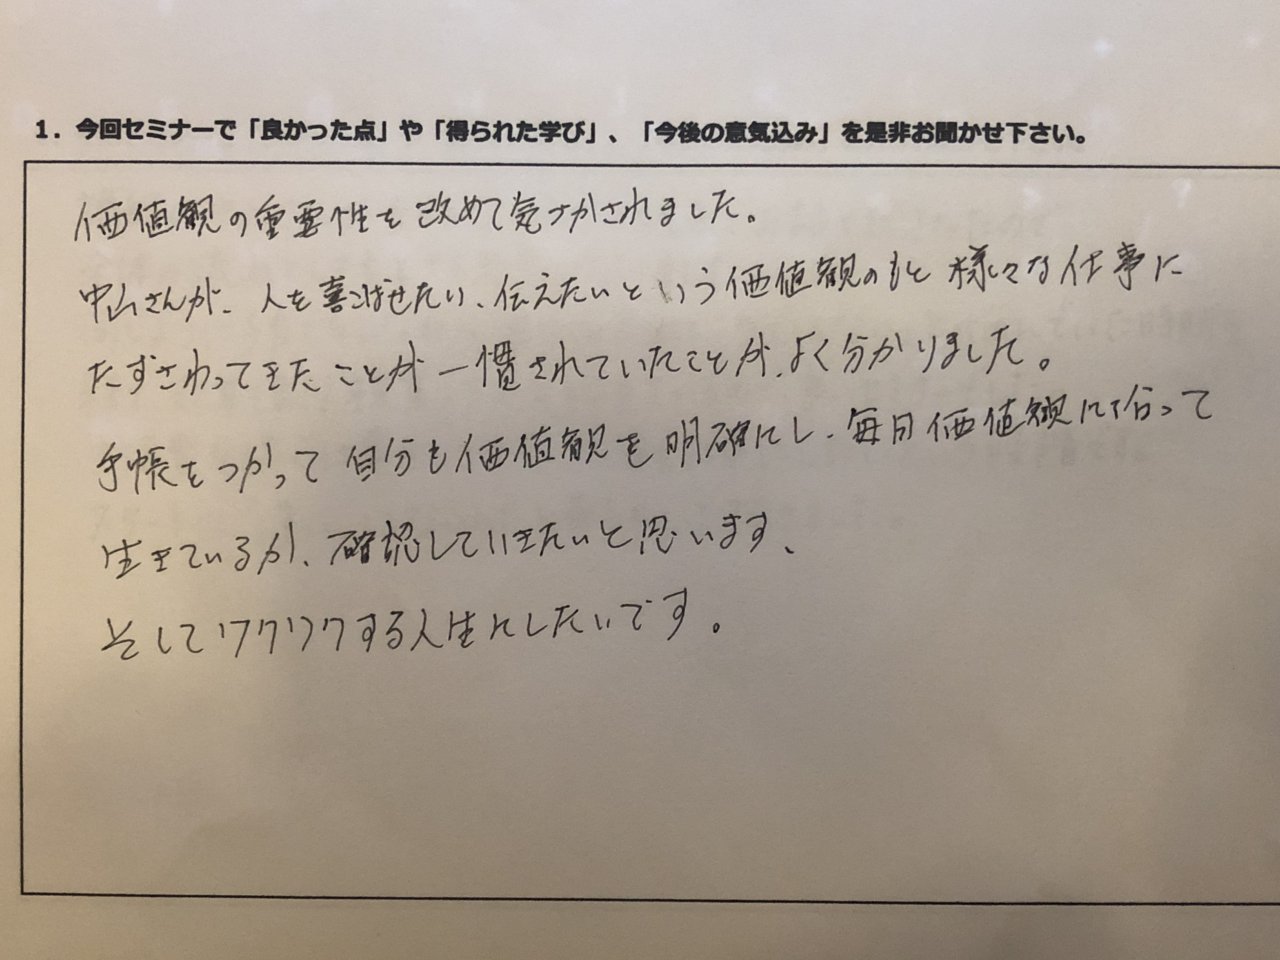 1. 今回セミナーで「良かった点」や「得られた学び」、「今後の意気込み」を是非お聞かせ下さい。
価値観の重要性を改めて気づかされました。
中山さんが、人を喜こばせたい、伝えたいという価値観のもと様々な仕事に
たずさわってきたことが一慣されていたことが、よく分かりました。
手帳をつかって自分も価値観を明確にし、毎日価値観に沿って
生きているか、確認していきたいと思います、
そしてワクワクする人生にしたいです。